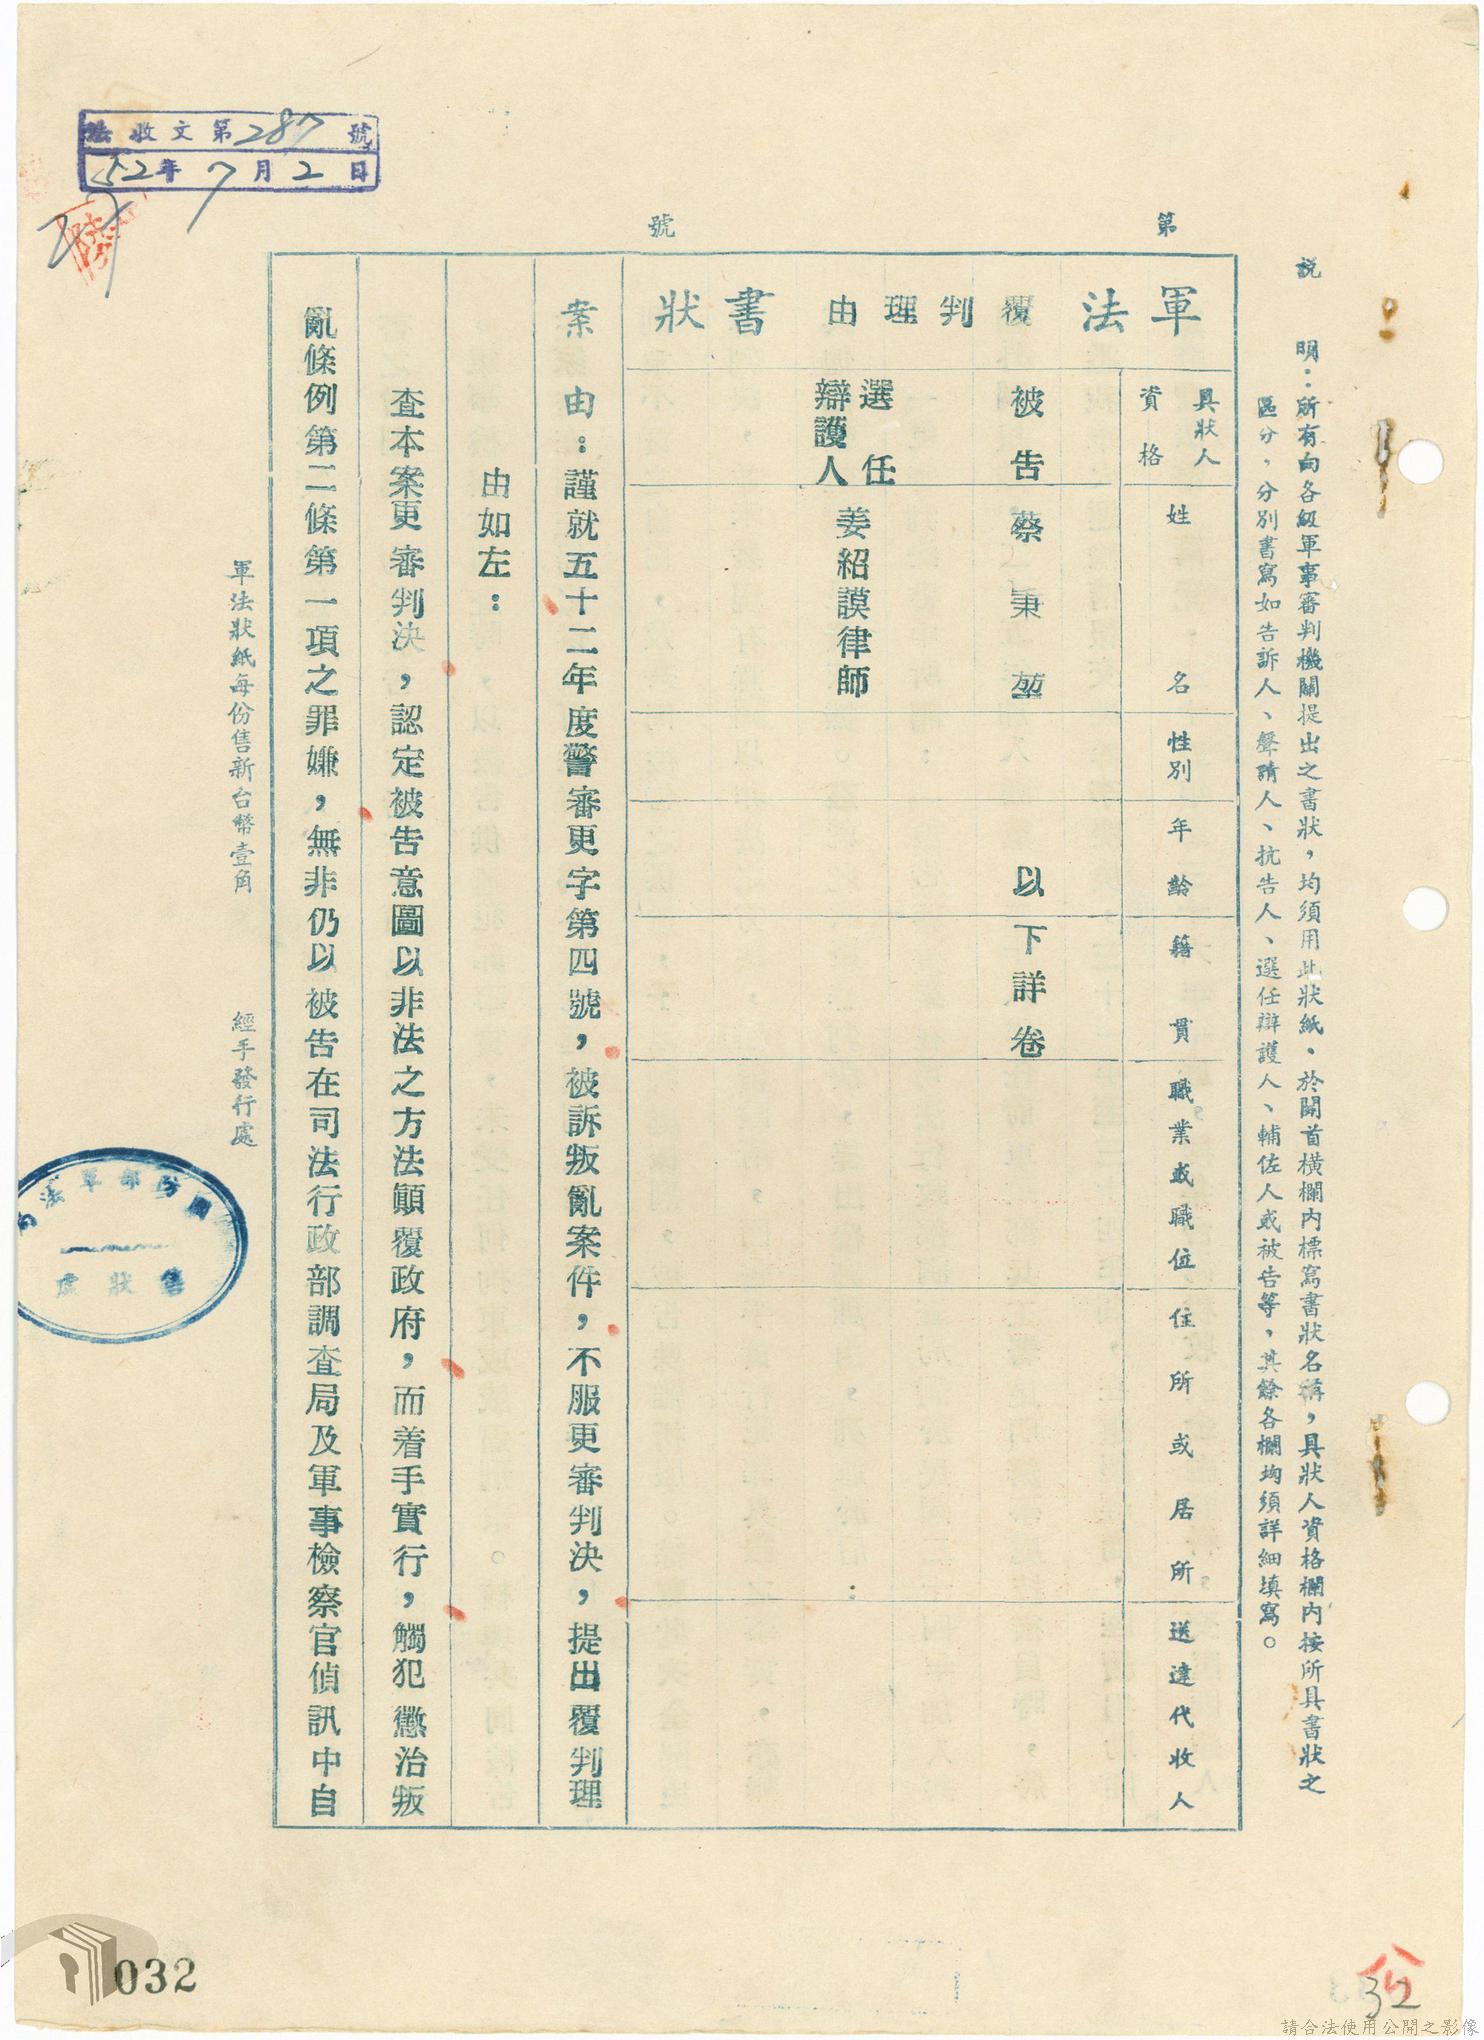 法收文第287號
52年7月2日
第 號
說 明：所有向各級軍事審判機關提出之書狀，均須用此狀紙、於開首橫欄內標寫書狀名稱，具狀人資格欄內按所具書狀之
區分，分別書寫如告訴人、聲請人、抗告人、選任辯護人、輔佐人或被告等，其餘各欄均須詳細填寫。
軍法覆判理由書狀
具狀人資格
姓名
性別
年齡
籍貫
職業或職位
住所或居所
送達代收人
被告
蔡秉堃
以下詳卷
選任
辯護人
姜紹謨律師
案由：謹就五十二年度警審更字第四號，被訴叛亂案件，不服更審判決，提出覆判理
由如左：
查本案更審判決，認定被告意圖以非法之方法顚覆政府，而着手實行，觸犯懲治叛
亂條例第二條第一項之罪嫌，無非仍以被告在司法行政部調查局及軍事檢察官偵訊中自
軍法狀紙每份售新台幣壹角 經手發行處
國防部軍法局
售狀處
032
32
請合法使用公開之影像